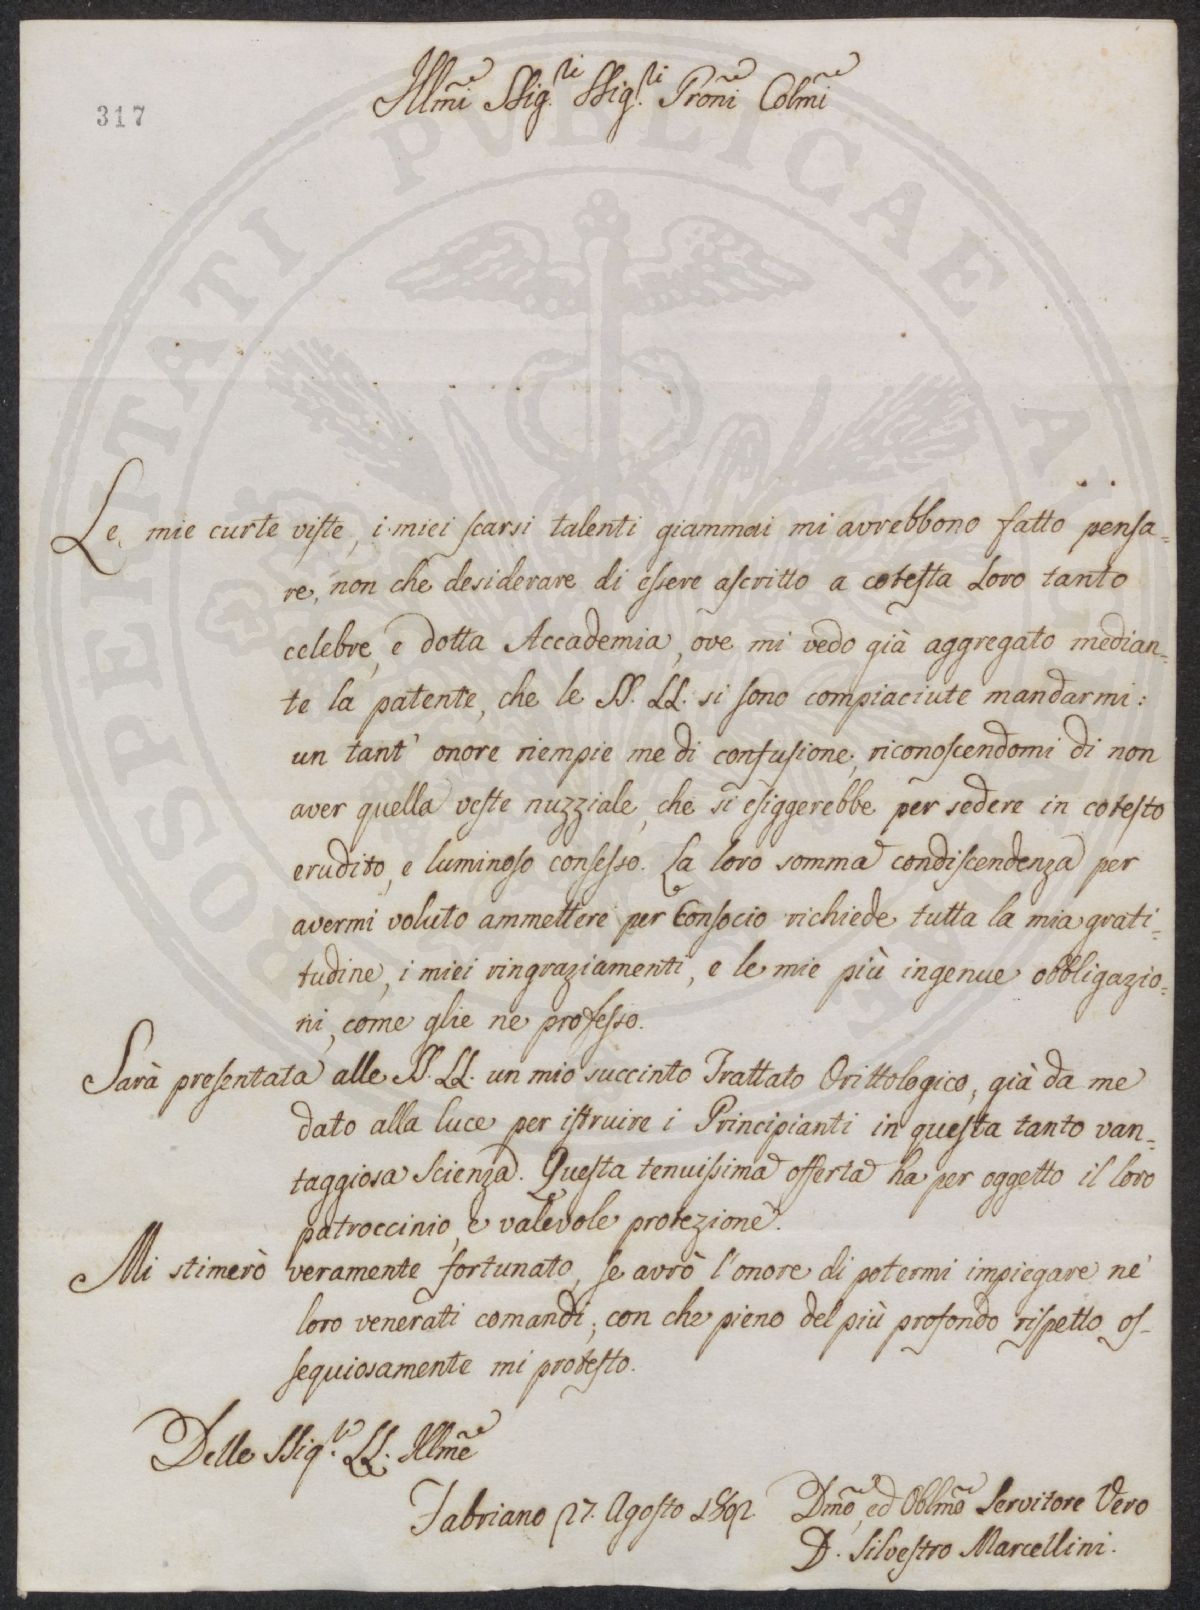 317
Illmi Ssig.ri Ssig.ri Proni Colmi
Le mie curte viste, i miei scarsi talenti giammai mi avrebbono fatto pensa=
re, non che desiderare di essere ascritto a cotesta Loro tanto
celebre, e dotta Accademia, ove mi vedo già aggregato median=
te la patente, che le SS. LL. si sono compiaciute mandarmi:
un tant' onore riempie me di confusione, riconoscendomi di non
aver quella veste nuzziale, che si esiggerebbe per sedere in cotesto
erudito, e luminoso consesso. La loro somma condiscendenza per
avermi voluto ammettere per Consocio richiede tutta la mia grati=
tudine, i miei ringraziamenti, e le mie più ingenue obbligazio=
ni, come glie ne professo.
Sarà presentata alle SS. LL. un mio succinto Trattato Orittologico, già da me
dato alla luce per istruire i Principianti in questa tanto van=
taggiosa Scienza. Questa tenuissima offerta ha per oggetto il loro
patroccinio, e valevole protezione.
Mi stimerò veramente fortunato, se avrò l'onore di potermi impiegare ne'
loro venerati comandi; con che pieno del più profondo rispetto os-
sequiosamente mi protesto.
Delle Ssig.rie LL. Illme
Fabriano 27. Agosto 1802. Dmo, ed Oblmo Servitore Vero
D. Silvestro Marcellini.
PROSPERITATI PVBLICAE